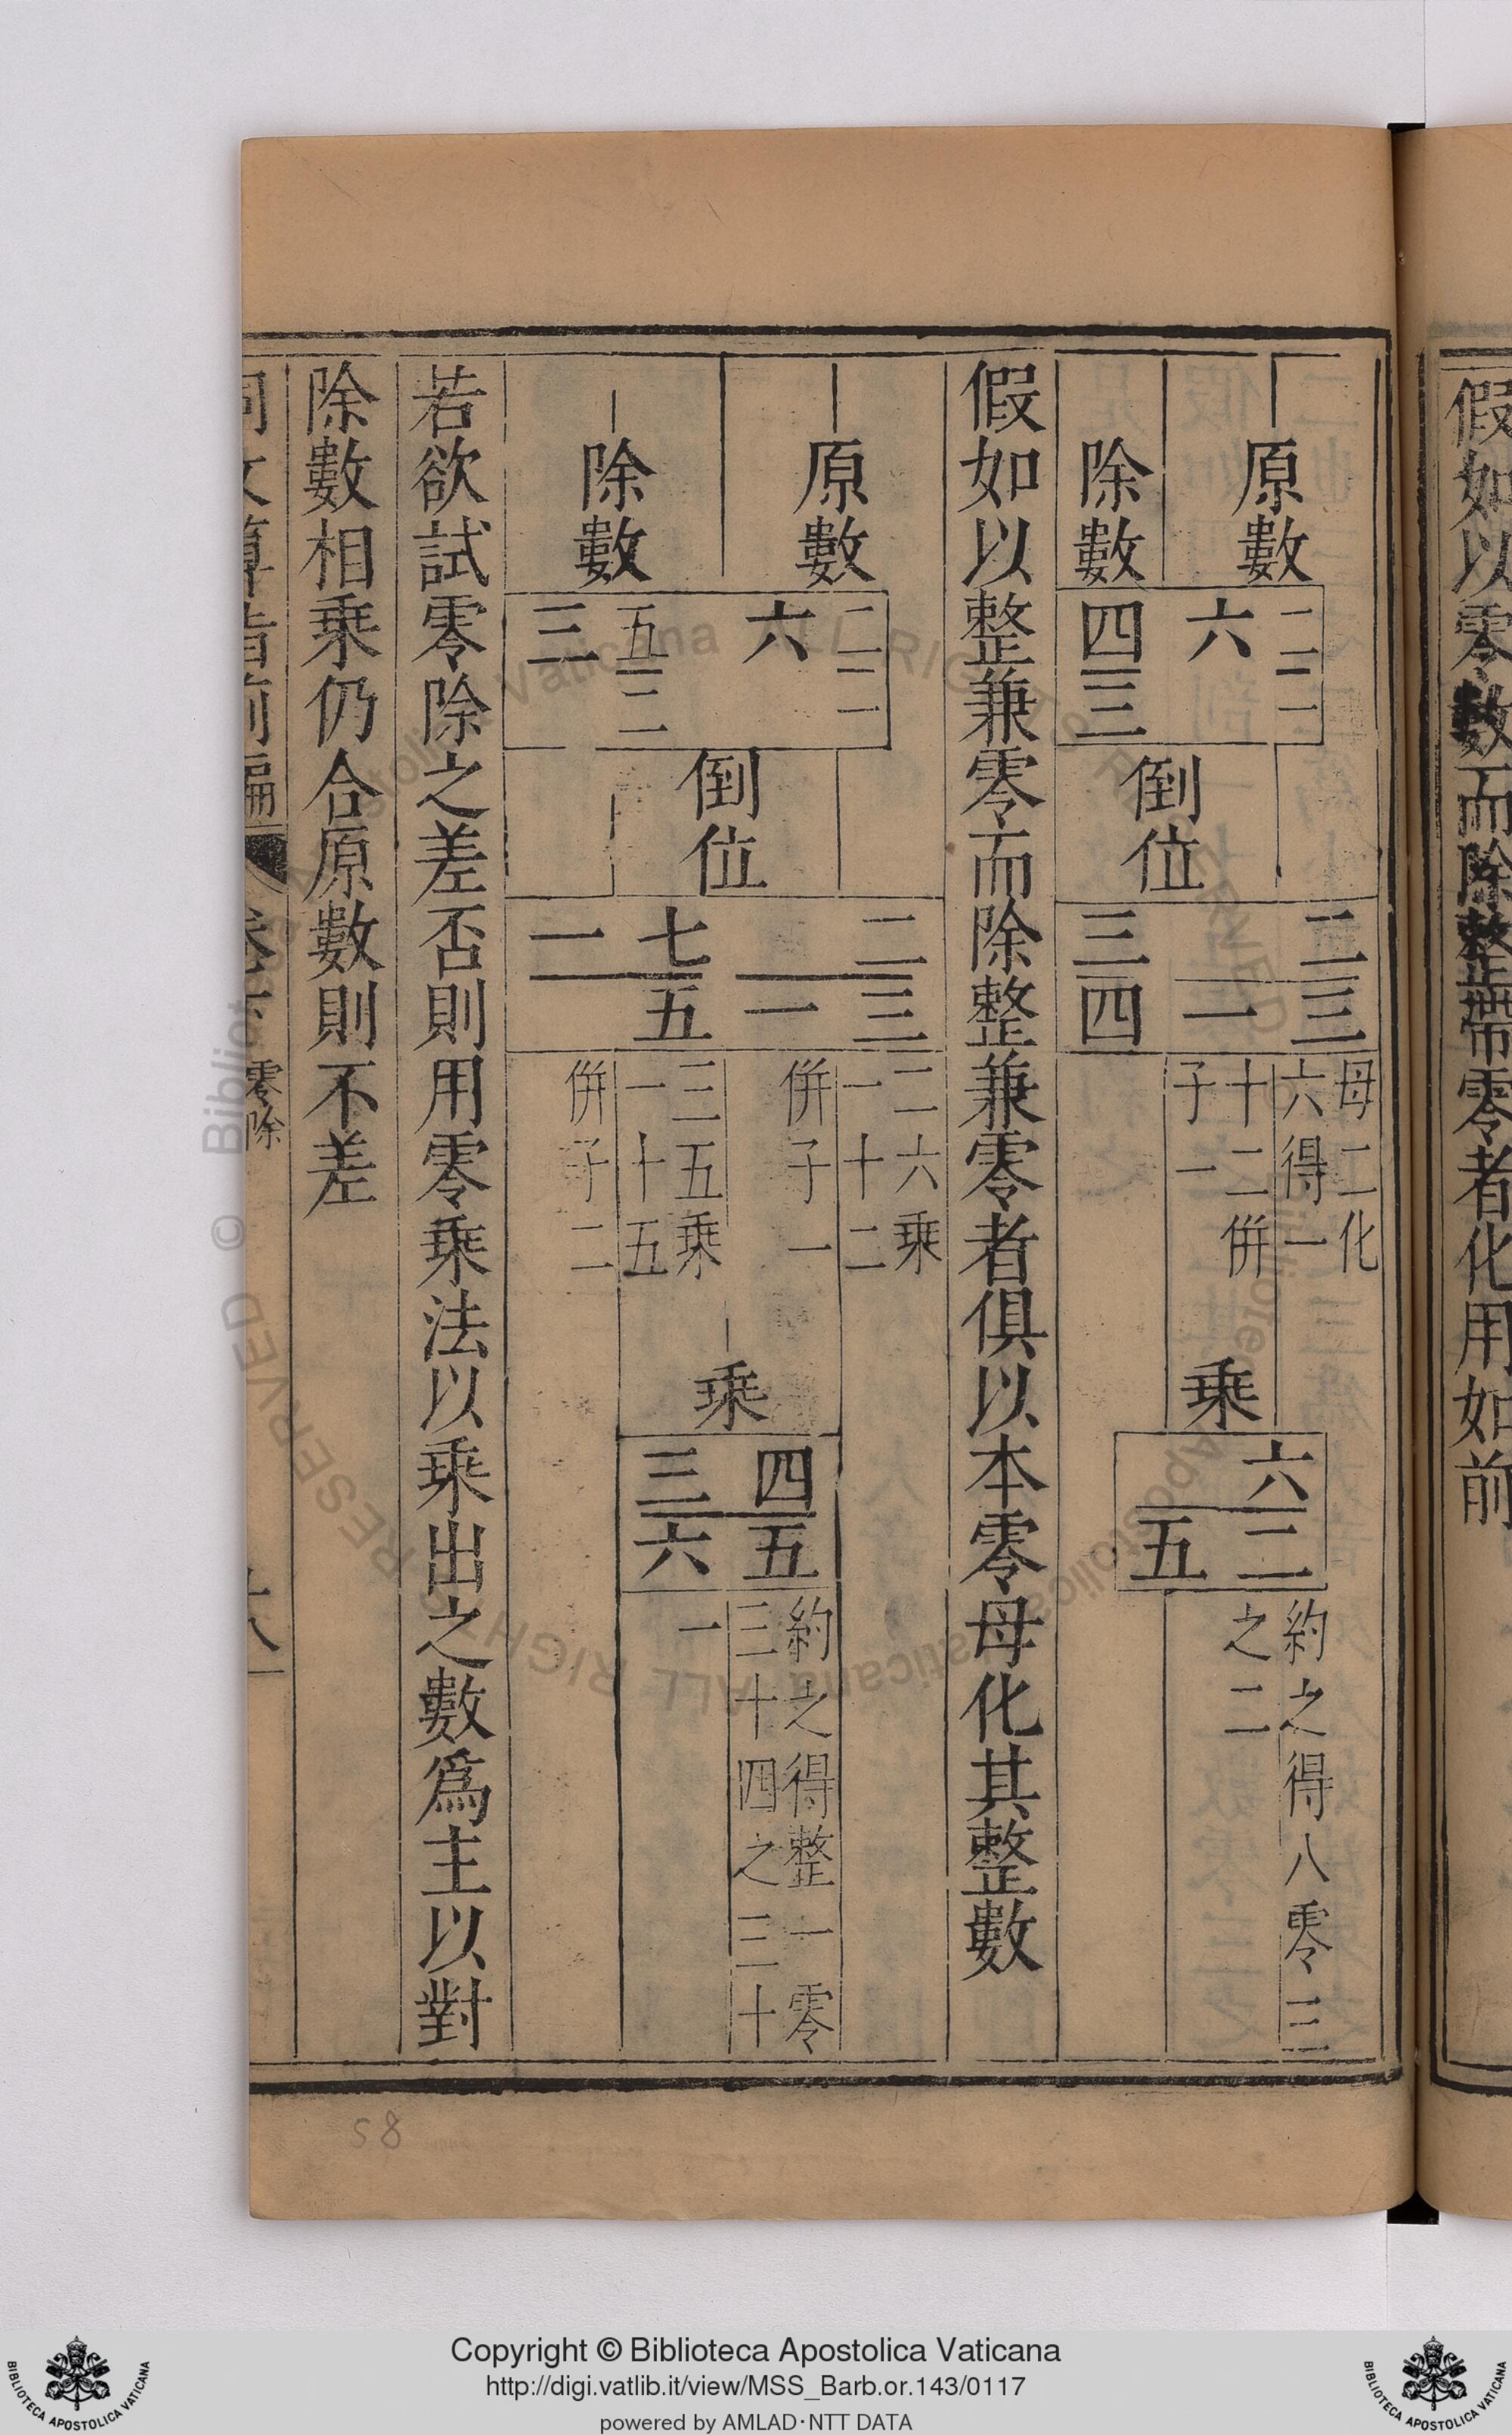 假如以零數而除整帶零者化用如前
原數
二一
六
除數
四三
倒位
二三
一
三四
母二化
六得一
十二併
子一
乘
六二
五
約之得八零三
之二
假如以整兼零而除整兼零者俱以本零母化其整數
原數
二一
六
除數
五二
三
倒位
二三
一
七五
一
二六乘
一十二
併子一
三五乘
一十五
併子二
乘
四五
三六
約之得整一零
三十四之三十
一
若欲試零除之差否則用零乘法以乘出之數為主以對
除數相乘仍合原數則不差
同文算指前編 卷下 零除
58
© Biblioteca Apostolica Vaticana ALL RIGHTS RESERVED
Copyright © Biblioteca Apostolica Vaticana
http://digi.vatlib.it/view/MSS_Barb.or.143/0117
powered by AMLAD·NTT DATA
BIBLIOTECA APOSTOLICA VATICANA
BIBLIOTECA APOSTOLICA VATICANA